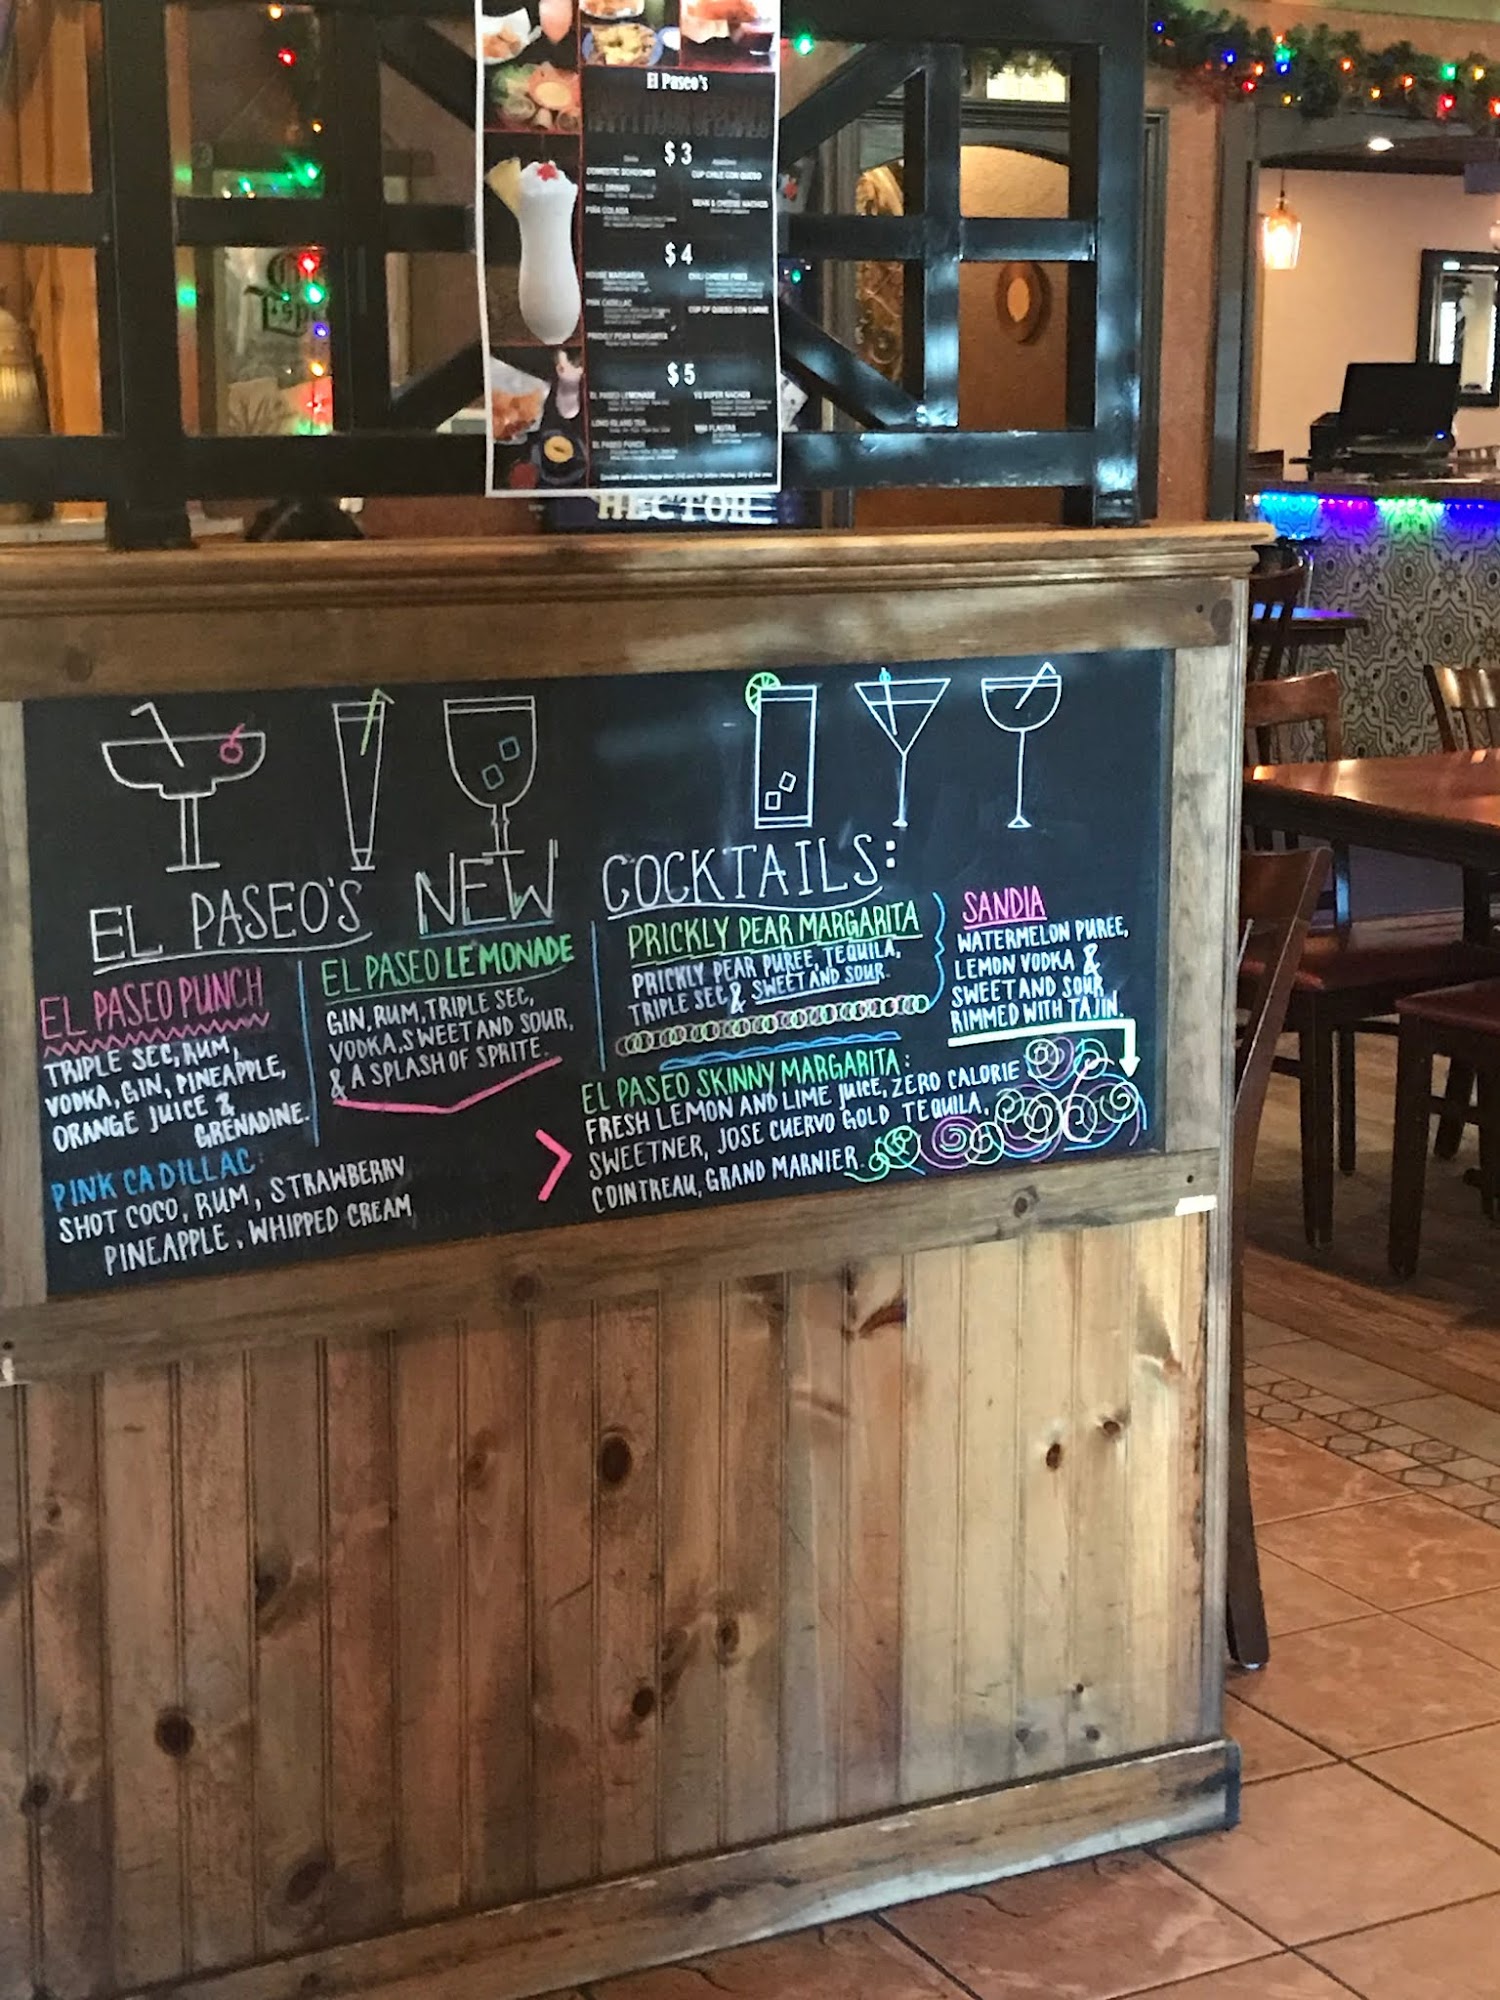 El Paseo's
$3
DOMESTIC SCHOONER
CUP CHILE CON QUESO
WELL DRINKS
BEAN & CHEESE NACHOS
PIÑA COLADA
$4
HOUSE MARGARITA
CHILI CHEESE FRIES
PINK CADILLAC
CUP OF QUESO CON CARNE
PRICKLY PEAR MARGARITA
$5
EL PASEO LEMONADE
SUPER NACHOS
LONG ISLAND TEA
MINI FLAUTAS
EL PASEO PUNCH
HECTOR
EL PASEO'S NEW COCKTAILS:
EL PASEO PUNCH
TRIPLE SEC, RUM,
VODKA, GIN, PINEAPPLE,
ORANGE JUICE &
GRENADINE.
PINK CADILLAC:
SHOT COCO, RUM, STRAWBERRY
PINEAPPLE, WHIPPED CREAM
EL PASEO LEMONADE
GIN, RUM, TRIPLE SEC,
VODKA, SWEET AND SOUR,
& A SPLASH OF SPRITE.
PRICKLY PEAR MARGARITA
PRICKLY PEAR PUREE, TEQUILA,
TRIPLE SEC & SWEET AND SOUR.
SANDIA
WATERMELON PUREE,
LEMON VODKA &
SWEET AND SOUR
RIMMED WITH TAJIN.
EL PASEO SKINNY MARGARITA:
FRESH LEMON AND LIME JUICE, ZERO CALORIE
SWEETNER, JOSE CUERVO GOLD TEQUILA,
COINTREAU, GRAND MARNIER.